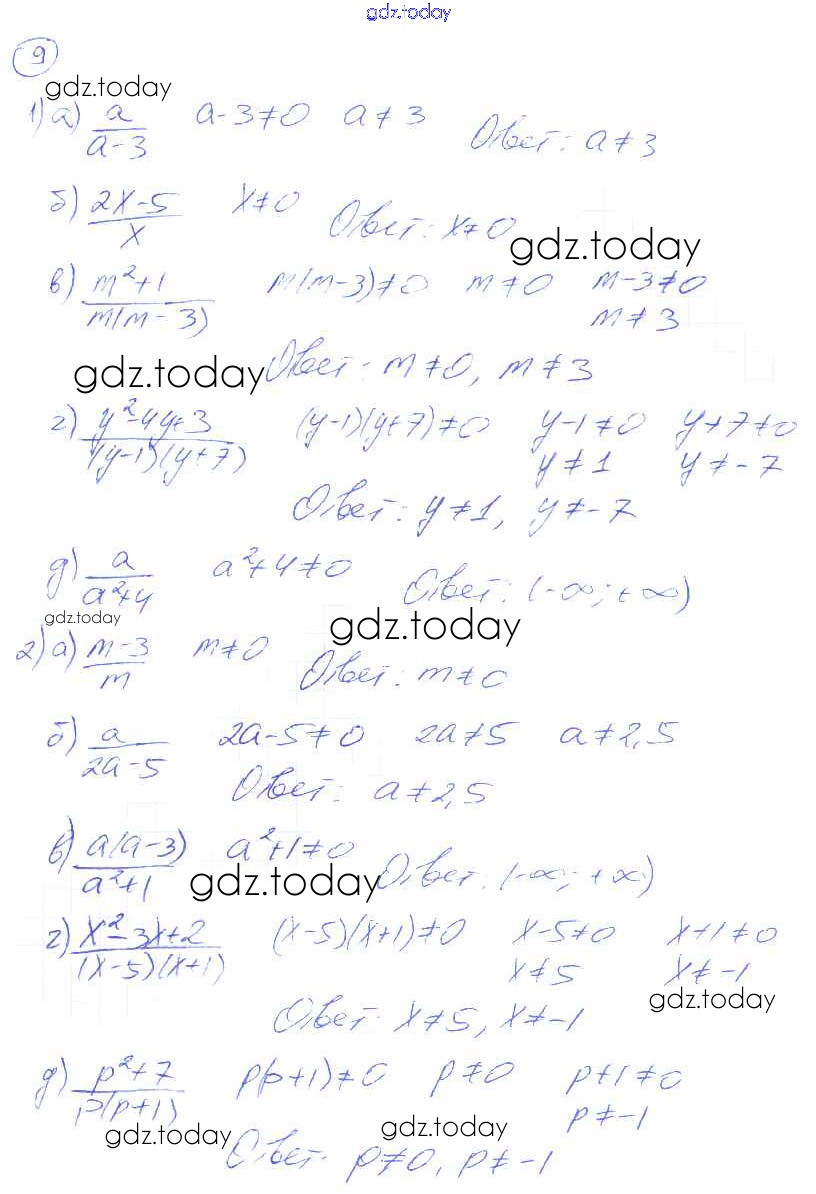 gdz.today
9
gdz.today
1) а) a/(a-3) a-3≠0 a≠3 Ответ: a≠3
б) (2x-5)/x x≠0 Ответ: x≠0
gdz.today
в) (m²+1)/(m(m-3)) m(m-3)≠0 m≠0 m-3≠0
m≠3
gdz.today Ответ: m≠0, m≠3
г) (y²-4y+3)/((y-1)(y+7)) (y-1)(y+7)≠0 y-1≠0 y+7≠0
y≠1 y≠-7
Ответ: y≠1, y≠-7
д) a/(a²+4) a²+4≠0 Ответ: (-∞; +∞)
gdz.today gdz.today
2) а) (m-3)/m m≠0 Ответ: m≠0
б) a/(2a-5) 2a-5≠0 2a≠5 a≠2,5
Ответ: a≠2,5
в) a(a-3)/(a²+1) a²+1≠0 Ответ: (-∞; +∞)
gdz.today
г) (x²-3x+2)/((x-5)(x+1)) (x-5)(x+1)≠0 x-5≠0 x+1≠0
x≠5 x≠-1
gdz.today
Ответ: x≠5, x≠-1
д) (p²+7)/(p(p+1)) p(p+1)≠0 p≠0 p+1≠0
p≠-1
gdz.today gdz.today
Ответ: p≠0, p≠-1